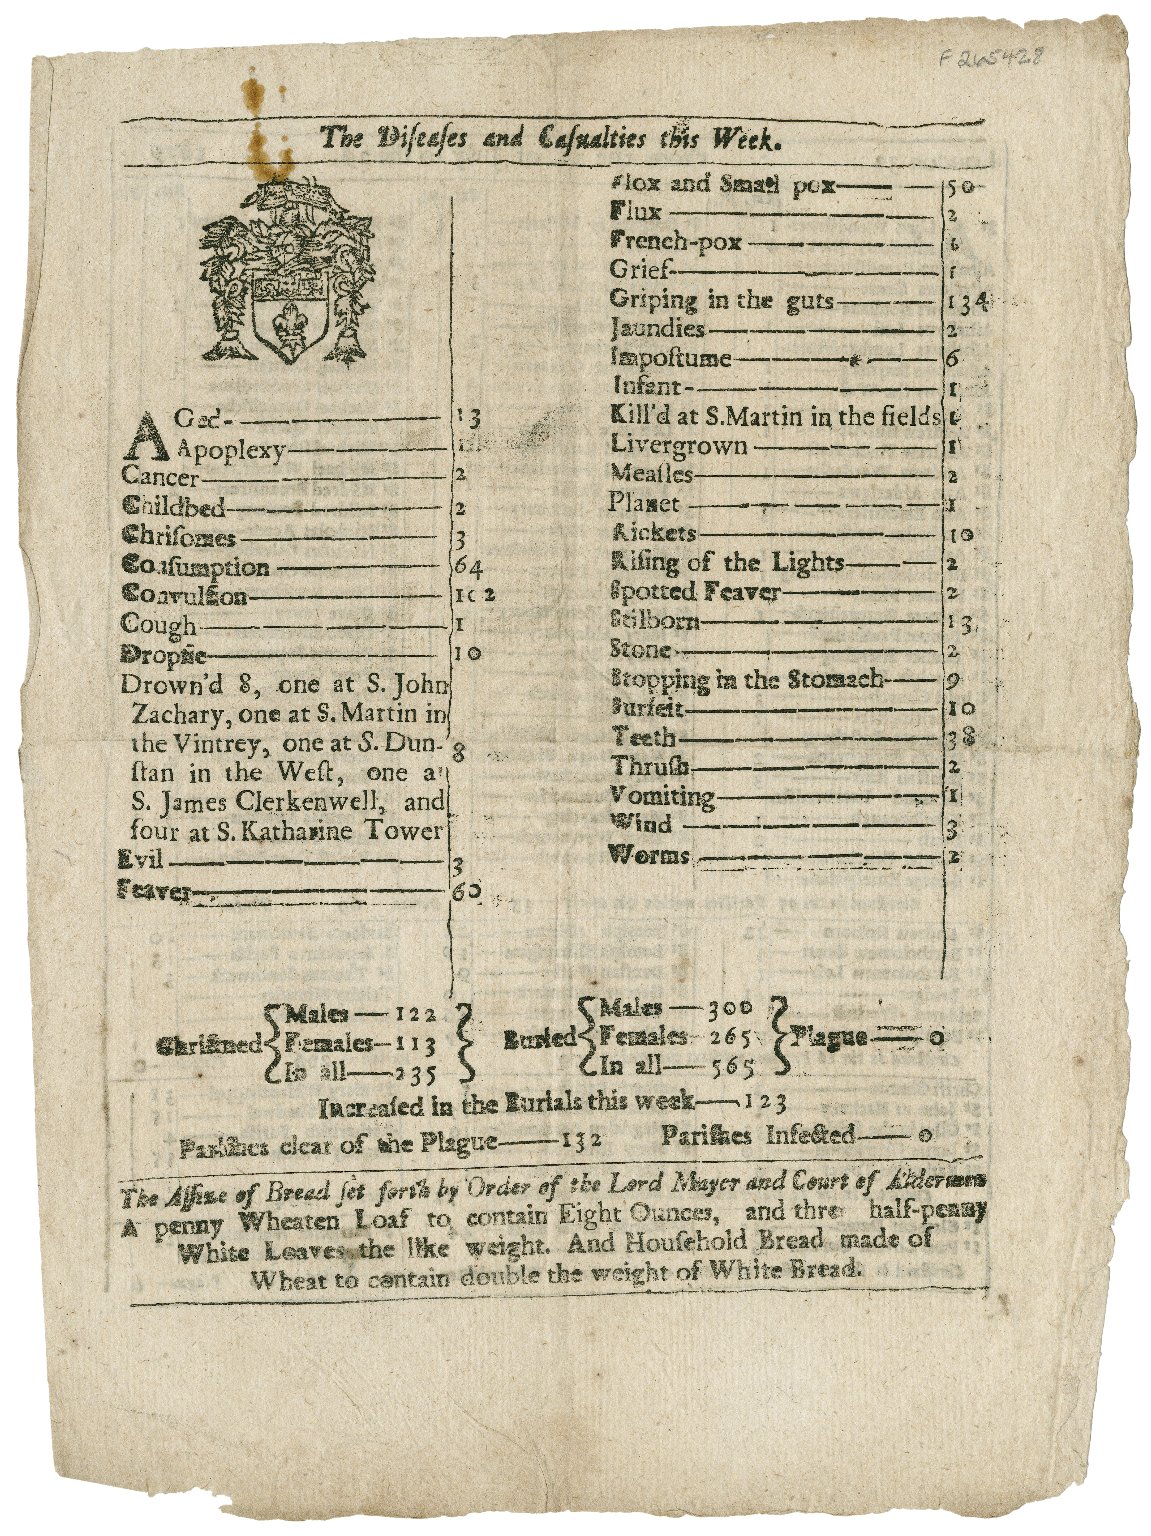 F 265428
The Diſeaſes and Caſualties this Week.
AGed 13
Apoplexy 1
Cancer 2
Childbed 2
Chriſomes 3
Conſumption 64
Convulſion 102
Cough 1
Dropſie 10
Drown'd 8, one at S. John
Zachary, one at S. Martin in
the Vintrey, one at S. Dun-
ſtan in the Weſt, one at 8
S. James Clerkenwell, and
four at S. Katharine Tower
Evil 3
Feaver 60
Flox and Small pox 50
Flux 2
French-pox
Grief 1
Griping in the guts 134
Jaundies 2
Impoſtume 6
Infant 1
Kill'd at S. Martin in the fields 1
Livergrown 1
Meaſles 2
Planet 1
Rickets 10
Riſing of the Lights 2
Spotted Feaver 2
Stilborn 13
Stone 2
Stopping in the Stomach 9
Surfeit 10
Teeth 38
Thruſh 2
Vomiting 1
Wind 3
Worms 2
Chriſtned { Males 122 Females 113 In all 235 }
Buried { Males 300 Females 265 In all 565 } Plague 0
Increaſed in the Burials this week 123
Pariſhes clear of the Plague 132 Pariſhes Infected 0
The Aſſize of Bread ſet forth by Order of the Lord Mayor and Court of Aldermen
A penny Wheaten Loaf to contain Eight Ounces, and three half-penny
White Loaves the like weight. And Houſehold Bread made of
Wheat to contain double the weight of White Bread.